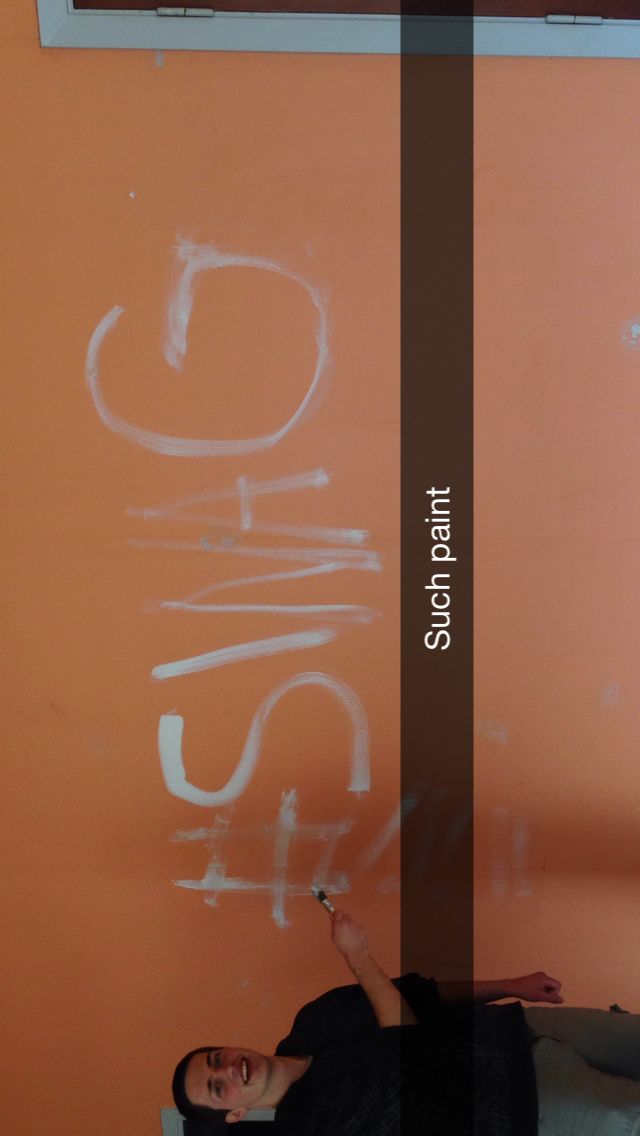 #SWAG
Such paint